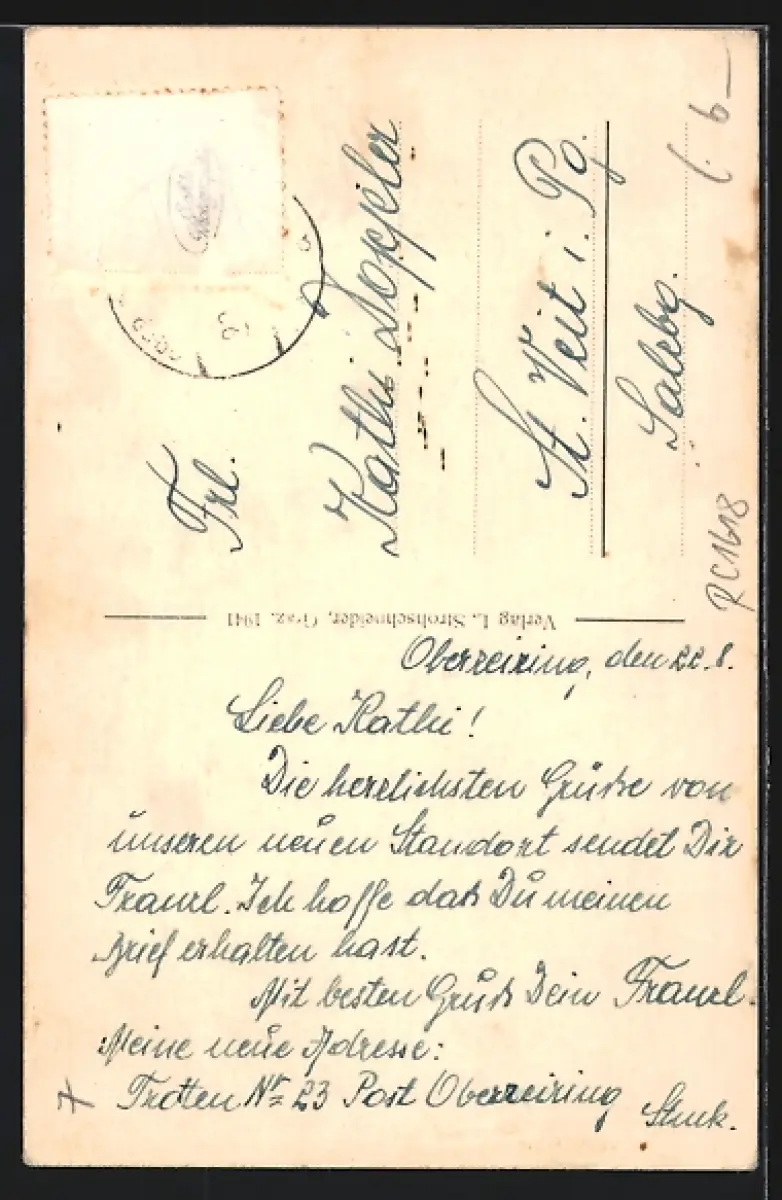 Frl.
Kathi Doppler
St. Veit i. Pg.
Salzbg.
RC1618
Verlag L. Strohschneider, Graz, 1941
Oberzeiring, den 22.8.
Liebe Kathi!
Die herzlichsten Grüße von
unseren neuen Standort sendet Dir
Franzl. Ich hoffe daß Du meinen
Brief erhalten hast.
Mit besten Gruß Dein Franzl.
Meine neue Adresse:
Nr 23 Post Oberzeiring